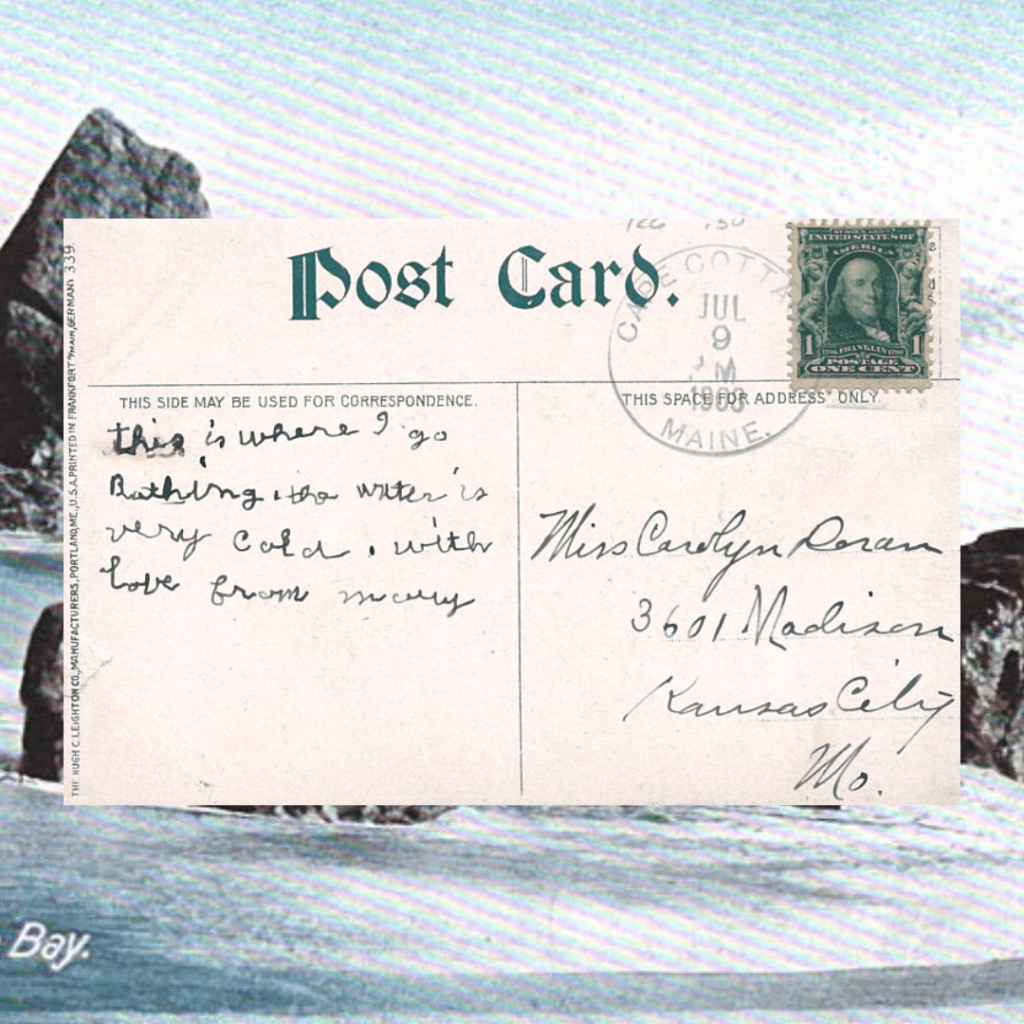 Post Card.
CAPE COTTA
JUL
9
M
MAINE.
SERIES 1902
UNITED STATES OF
AMERICA
1 FRANKLIN 1
POSTAGE
ONE CENT
THIS SIDE MAY BE USED FOR CORRESPONDENCE.
THIS SPACE FOR ADDRESS ONLY.
this is where I go
Bathing the water is
very cold. with
love from mary
Miss Carolyn Doran
3601 Madison
Kansas City
Mo.
THE HUGH C. LEIGHTON CO., MANUFACTURERS, PORTLAND, ME., U.S.A. PRINTED IN FRANKFORT o/MAIN, GERMANY 339
Bay.